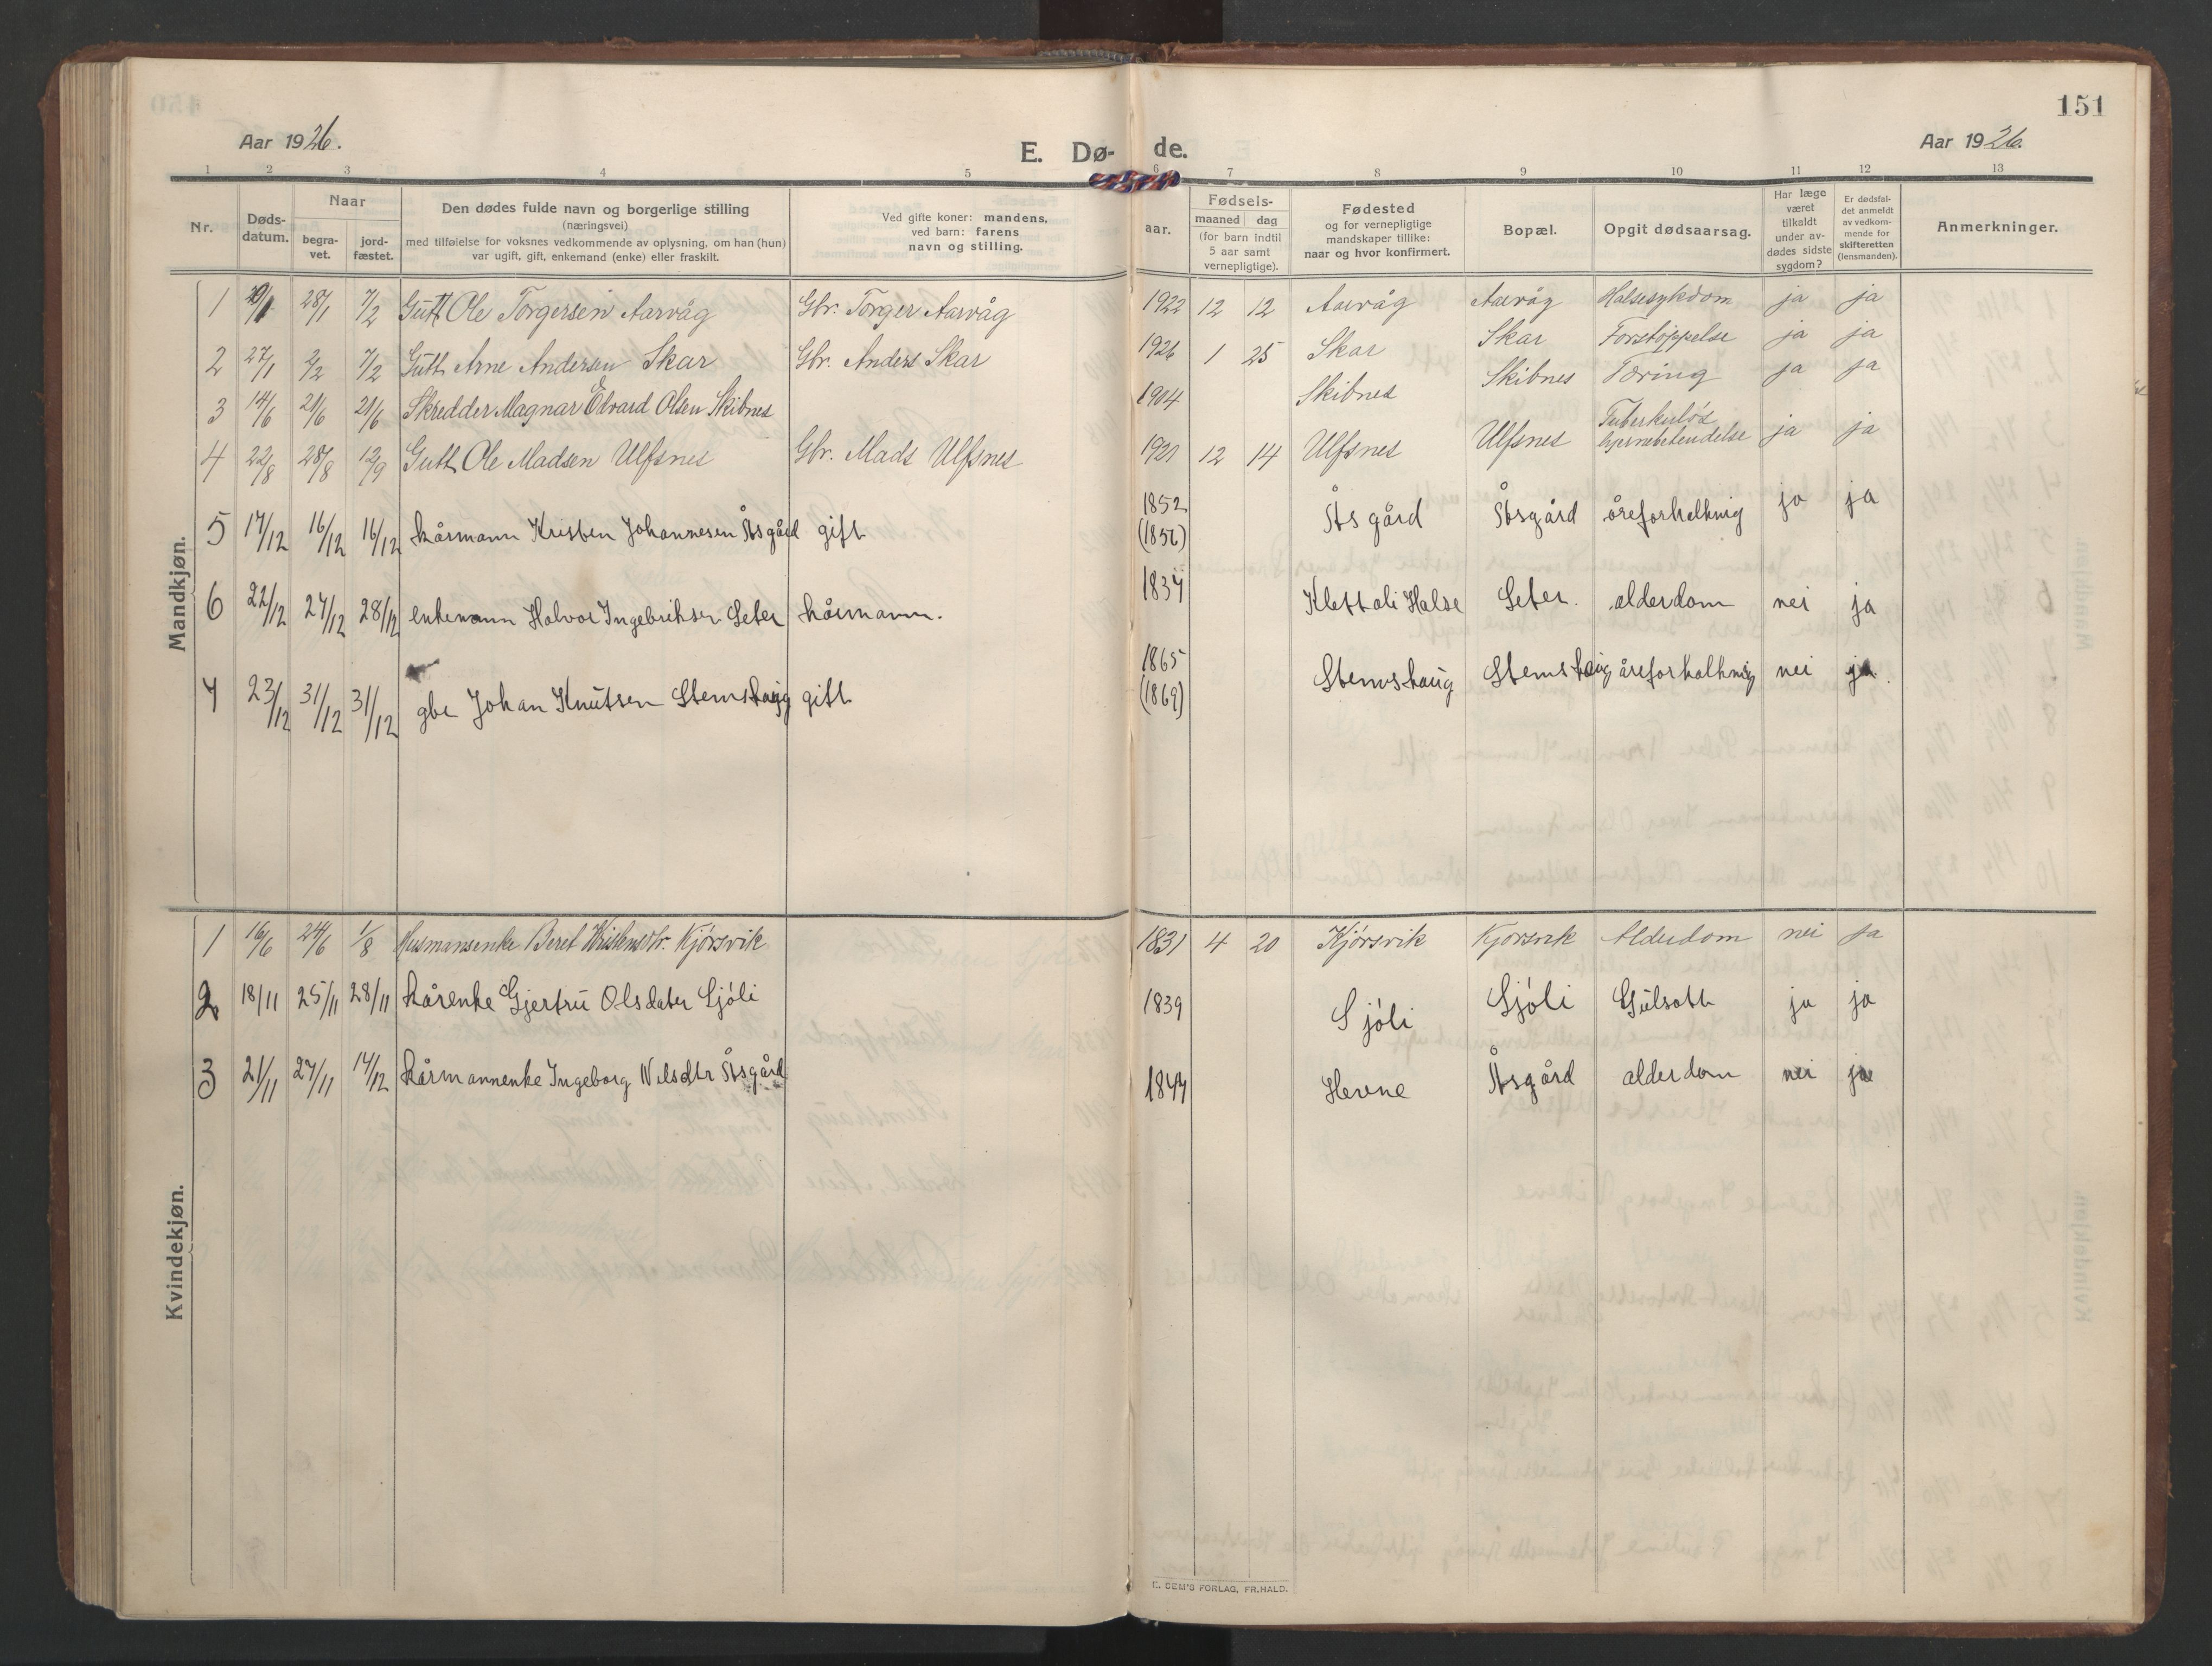 151
Aar 1926.
E. Dø- de.
Aar 1926.
1 2 3 4 5 6 7 8 9 10 11 12 13
Nr.
Døds-
datum.
Naar
begra-
vet.
jord-
fæstet.
Den dødes fulde navn og borgerlige stilling
(næringsvei)
med tilføielse for voksnes vedkommende av oplysning, om han (hun)
var ugift, gift, enkemand (enke) eller fraskilt.
Ved gifte koner: mandens,
ved barn: farens
navn og stilling.
Fødsels-
aar.
maaned dag
(for barn indtil
5 aar samt
vernepligtige).
Fødested
og for vernepligtige
mandskaper tillike:
naar og hvor konfirmert.
Bopæl.
Opgit dødsaarsag.
Har læge
været
tilkaldt
under av-
dødes sidste
sygdom?
Er dødsfal-
det anmeldt
av vedkom-
mende for
skifteretten
(lensmanden).
Anmerkninger.
Mandkjøn.
1 28/1 7/2 Gutt Ole Torgersen Aarvåg Gbr. Torger Aarvåg 1922 12 12 Aarvåg Aarvåg Halsesykdom ja ja
2 27/1 2/2 7/2 Gutt Arne Andersen Skar Gbr. Anders Skar 1926 1 25 Skar Skar Forstoppelse ja ja
3 14/6 21/6 21/6 Skredder Magnar Edvard Olsen Skibnes 1904 Skibnes Skibnes Tæring ja ja
4 22/8 28/8 12/9 Gutt Ole Madsen Ulfsnes Gbr. Mads Ulfsnes 1921 12 14 Ulfsnes Ulfsnes Tuberkuløs hjernebetendelse ja ja
5 16/12 16/12 kårmann Kristen Johannesen Åsgård gift 1852 Åsgård Åsgård åreforkalkning ja ja
6 22/12 27/12 28/12 enkemann Halvor Ingebriktsen Seter kårmann. 1837 Klettoli Halse Seter. alderdom nei ja
7 23/12 31/12 31/12 gbr Johan Knutsen Stemshaug gift 1865 (1869) Stemshaug Stemshaug åreforkalkning nei ja.
Kvindekjøn.
1 16/6 24/6 1/8 Husmannsenke Beret Kristensdtr. Kjørsvik 1831 4 20 Kjørsvik Kjørsvik Alderdom nei ja
2 18/11 25/11 28/11 kårenke Gjertru Olsdater Sjøli 1839 Sjøli Sjøli Gulsott ja ja
3 21/11 27/11 kårmannenke Ingeborg Nilsdtr Åsgård 1847 Hevne Åsgård alderdom nei ja
E. SEM'S FORLAG, FR.HALD.